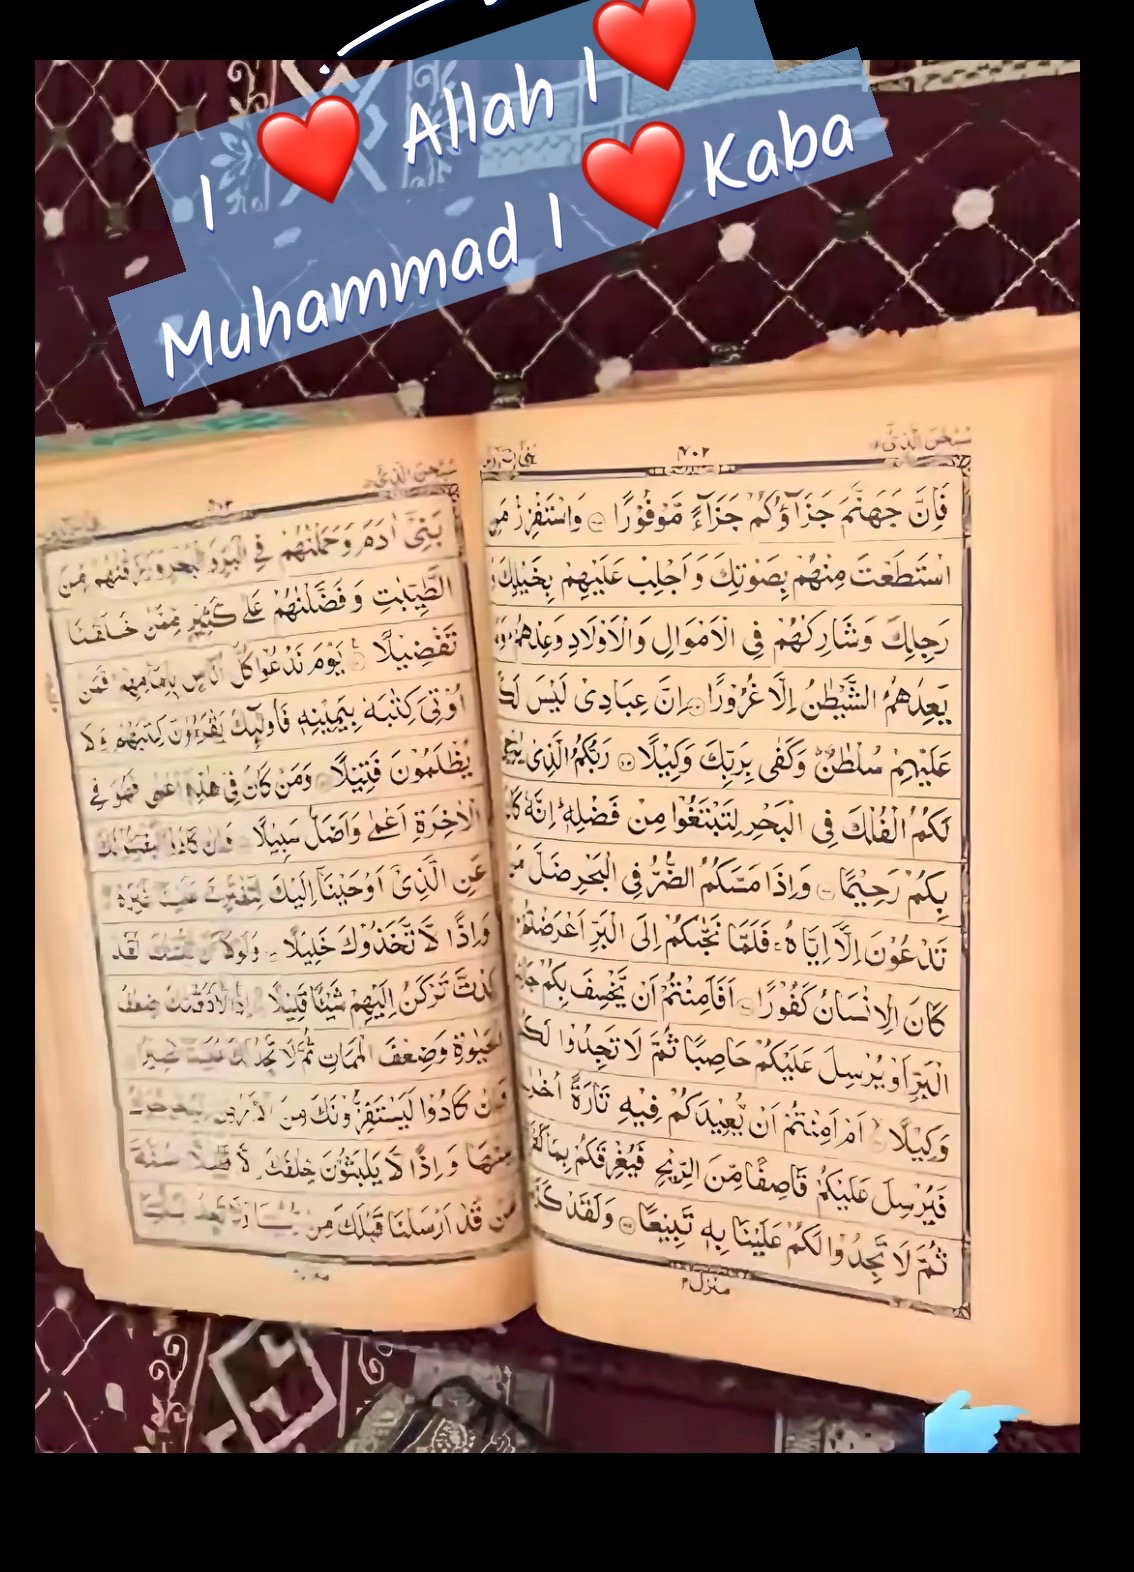 I ❤️ Allah I ❤️
Muhammad I ❤️ Kaba
سُبْحٰنَ الَّذِیْۤ
۴۰۲
فَاِنَّ جَهَنَّمَ جَزَآؤُكُمْ جَزَآءً مَّوْفُوْرًا وَاسْتَفْزِزْ مَنِ
اسْتَطَعْتَ مِنْهُمْ بِصَوْتِكَ وَاَجْلِبْ عَلَيْهِمْ بِخَيْلِكَ وَ
رَجِلِكَ وَشَارِكْهُمْ فِى الْاَمْوَالِ وَالْاَوْلَادِ وَعِدْهُمْ
يَعِدُهُمُ الشَّيْطٰنُ اِلَّا غُرُوْرًا اِنَّ عِبَادِىْ لَيْسَ لَكَ
عَلَيْهِمْ سُلْطٰنٌ وَكَفٰى بِرَبِّكَ وَكِيْلًا رَبُّكُمُ الَّذِىْ يُزْجِىْ
لَكُمُ الْفُلْكَ فِى الْبَحْرِ لِتَبْتَغُوْا مِنْ فَضْلِهٖ اِنَّهٗ كَانَ
بِكُمْ رَحِيْمًا وَاِذَا مَسَّكُمُ الضُّرُّ فِى الْبَحْرِ ضَلَّ مَنْ
تَدْعُوْنَ اِلَّاۤ اِيَّاهُ فَلَمَّا نَجّٰىكُمْ اِلَى الْبَرِّ اَعْرَضْتُمْ
كَانَ الْاِنْسَانُ كَفُوْرًا اَفَاَمِنْتُمْ اَنْ يَّخْسِفَ بِكُمْ جَانِبَ
الْبَرِّ اَوْ يُرْسِلَ عَلَيْكُمْ حَاصِبًا ثُمَّ لَا تَجِدُوْا لَكُمْ
وَكِيْلًا اَمْ اَمِنْتُمْ اَنْ يُّعِيْدَكُمْ فِيْهِ تَارَةً اُخْرٰى
فَيُرْسِلَ عَلَيْكُمْ قَاصِفًا مِّنَ الرِّيْحِ فَيُغْرِقَكُمْ بِمَا كَفَرْتُمْ
ثُمَّ لَا تَجِدُوْا لَكُمْ عَلَيْنَا بِهٖ تَبِيْعًا وَلَقَدْ كَرَّمْنَا
منزل ۴
سُبْحٰنَ الَّذِیْۤ
بَنِىْۤ اٰدَمَ وَحَمَلْنٰهُمْ فِى الْبَرِّ وَالْبَحْرِ وَرَزَقْنٰهُمْ مِّنَ
الطَّيِّبٰتِ وَفَضَّلْنٰهُمْ عَلٰى كَثِيْرٍ مِّمَّنْ خَلَقْنَا
تَفْضِيْلًا يَوْمَ نَدْعُوْا كُلَّ اُنَاسٍ بِاِمَامِهِمْ فَمَنْ
اُوْتِىَ كِتٰبَهٗ بِيَمِيْنِهٖ فَاُولٰٓئِكَ يَقْرَءُوْنَ كِتٰبَهُمْ وَلَا
يُظْلَمُوْنَ فَتِيْلًا وَمَنْ كَانَ فِىْ هٰذِهٖۤ اَعْمٰى فَهُوَ فِى
الْاٰخِرَةِ اَعْمٰى وَاَضَلُّ سَبِيْلًا وَاِنْ كَادُوْا لَيَفْتِنُوْنَكَ
عَنِ الَّذِىْۤ اَوْحَيْنَاۤ اِلَيْكَ لِتَفْتَرِىَ عَلَيْنَا غَيْرَهٗ
وَاِذًا لَّاتَّخَذُوْكَ خَلِيْلًا وَلَوْلَاۤ اَنْ ثَبَّتْنٰكَ لَقَدْ
كِدْتَّ تَرْكَنُ اِلَيْهِمْ شَيْئًا قَلِيْلًا اِذًا لَّاَذَقْنٰكَ ضِعْفَ
الْحَيٰوةِ وَضِعْفَ الْمَمَاتِ ثُمَّ لَا تَجِدُ لَكَ عَلَيْنَا نَصِيْرًا
وَاِنْ كَادُوْا لَيَسْتَفِزُّوْنَكَ مِنَ الْاَرْضِ لِيُخْرِجُوْكَ
مِنْهَا وَاِذًا لَّا يَلْبَثُوْنَ خِلٰفَكَ اِلَّا قَلِيْلًا سُنَّةَ
مَنْ قَدْ اَرْسَلْنَا قَبْلَكَ مِنْ